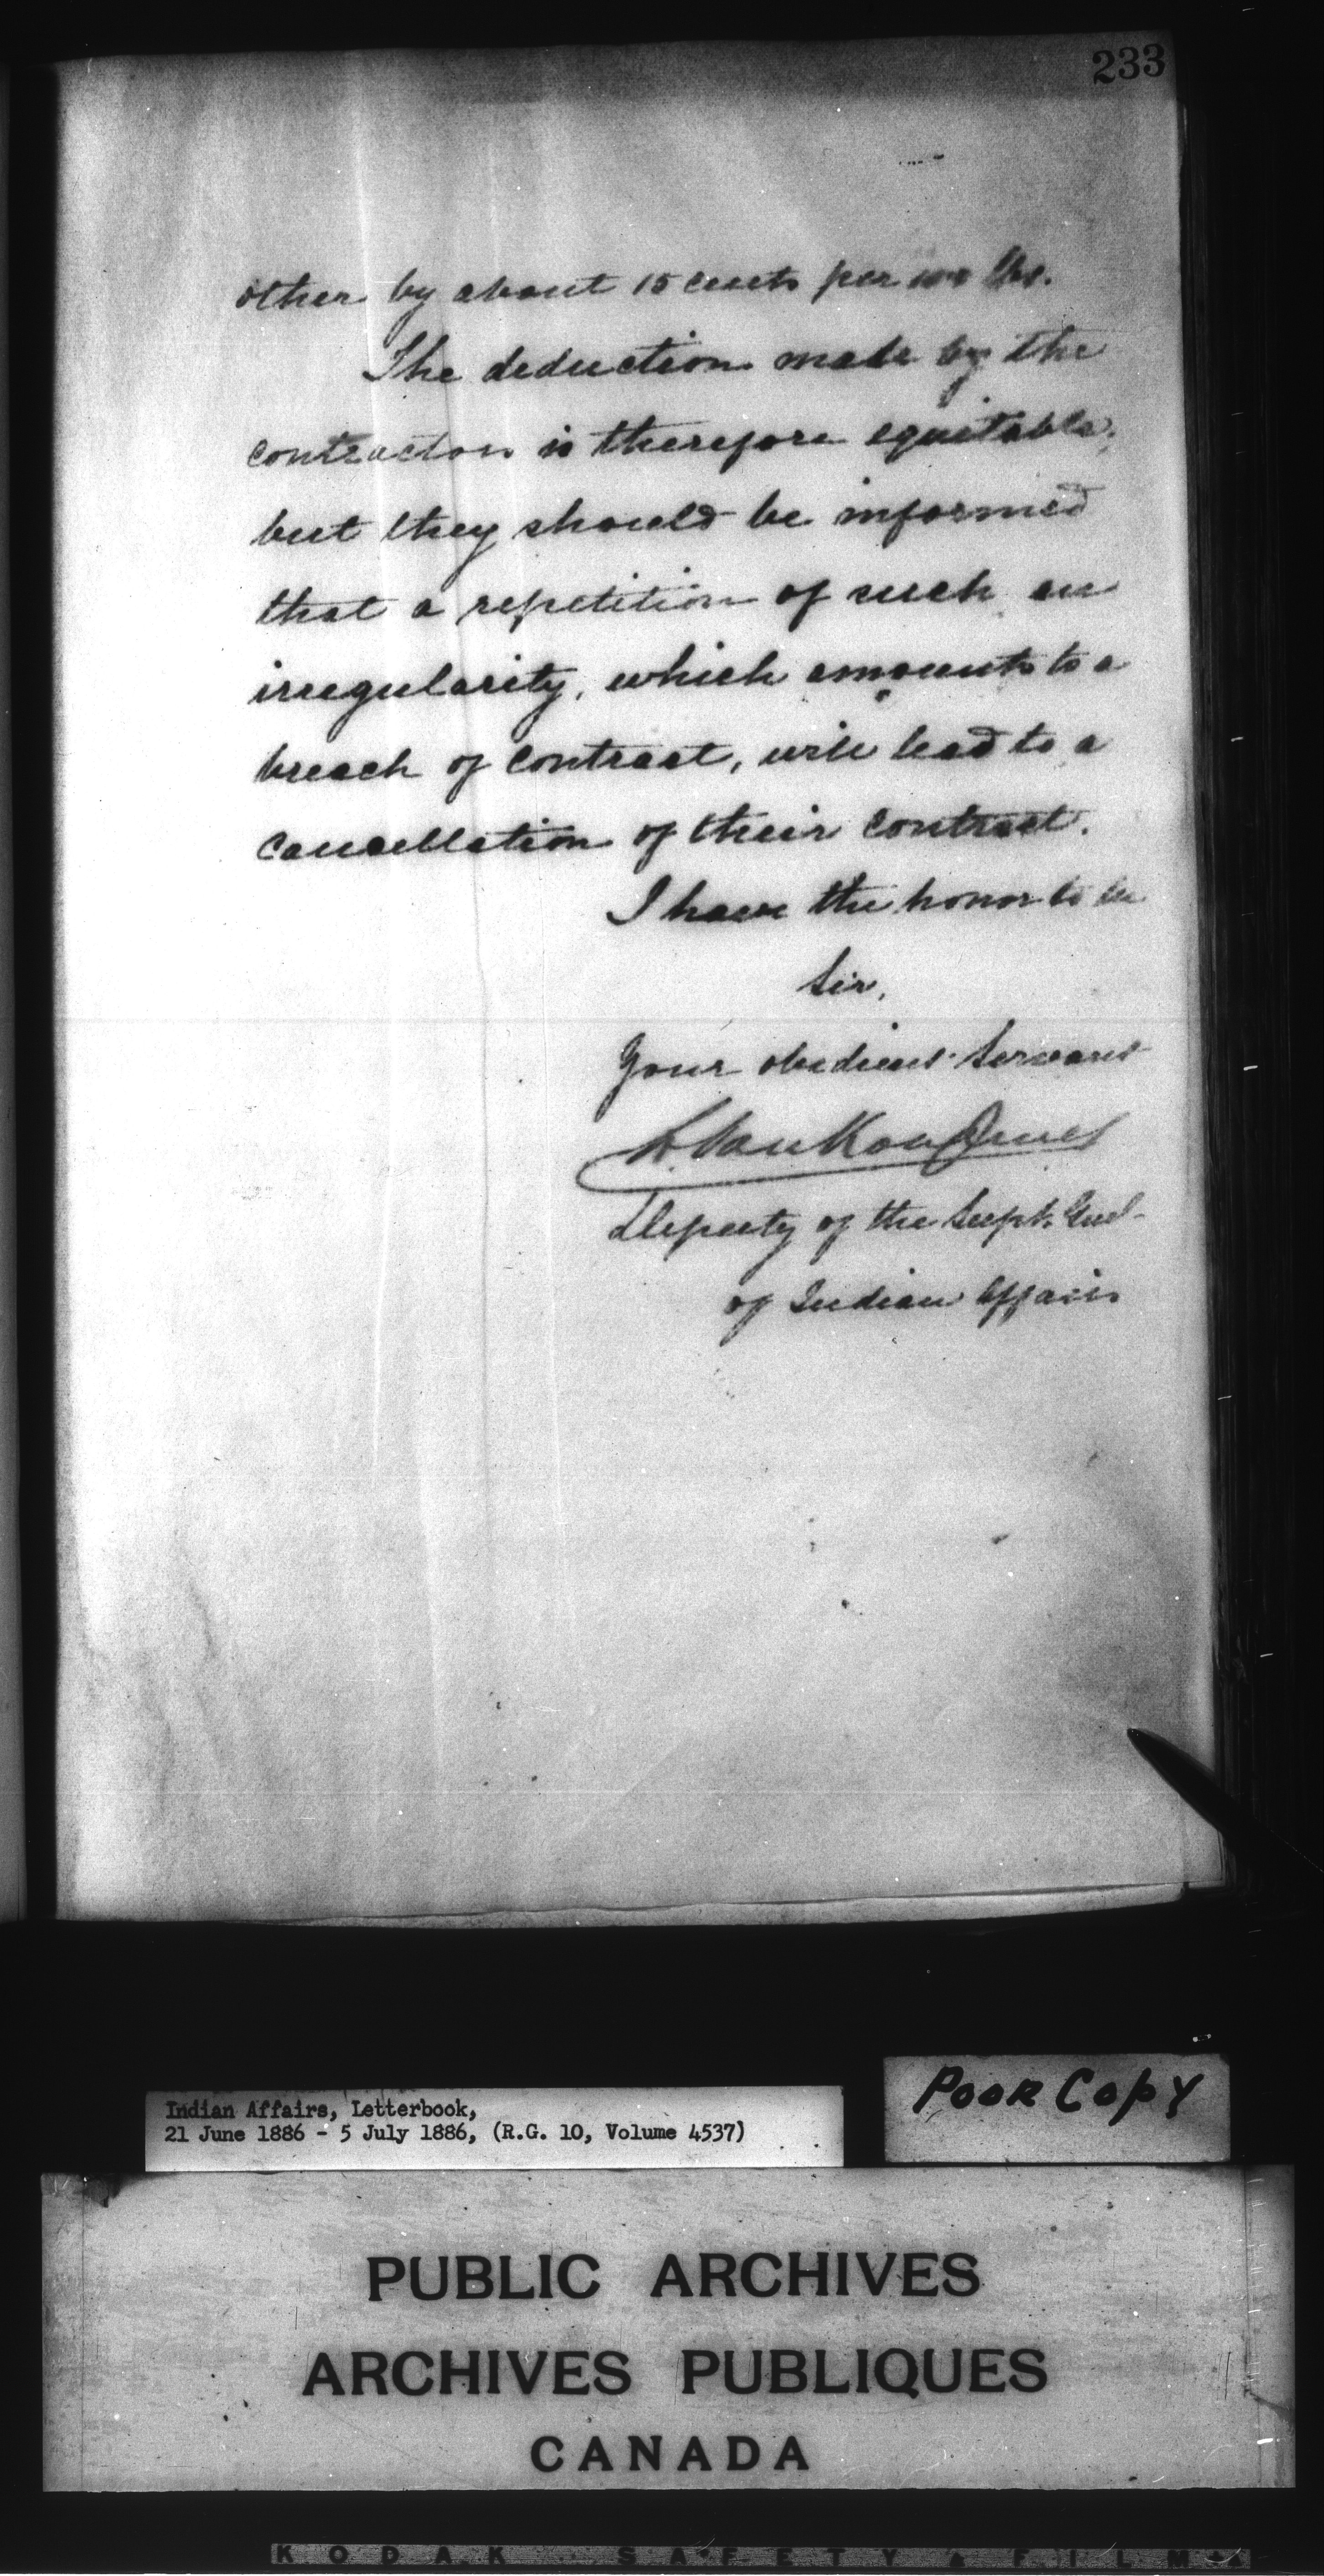 233
other by about 15 cents per 100 lbs.
The deduction made by the
contractors is therefore equitable,
but they should be informed
that a repetition of such an
irregularity, which amounts to a
breach of contract, will lead to a
cancellation of their contract.
I have the honor to be
Sir,
Your obedient Servant
L. VanKoughnet
Deputy of the Supt. Genl.
of Indian Affairs
Poor Copy
Indian Affairs, Letterbook,
21 June 1886 - 5 July 1886, (R.G. 10, Volume 4537)
PUBLIC ARCHIVES
ARCHIVES PUBLIQUES
CANADA
KODAK SAFETY FILM